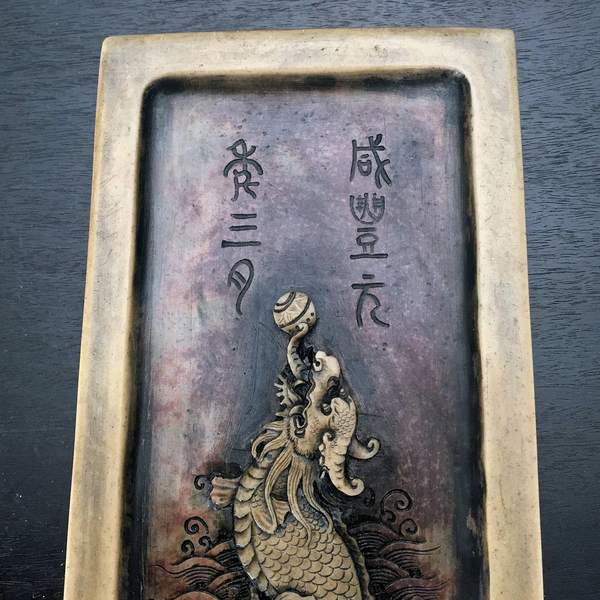 咸豐元
年三月